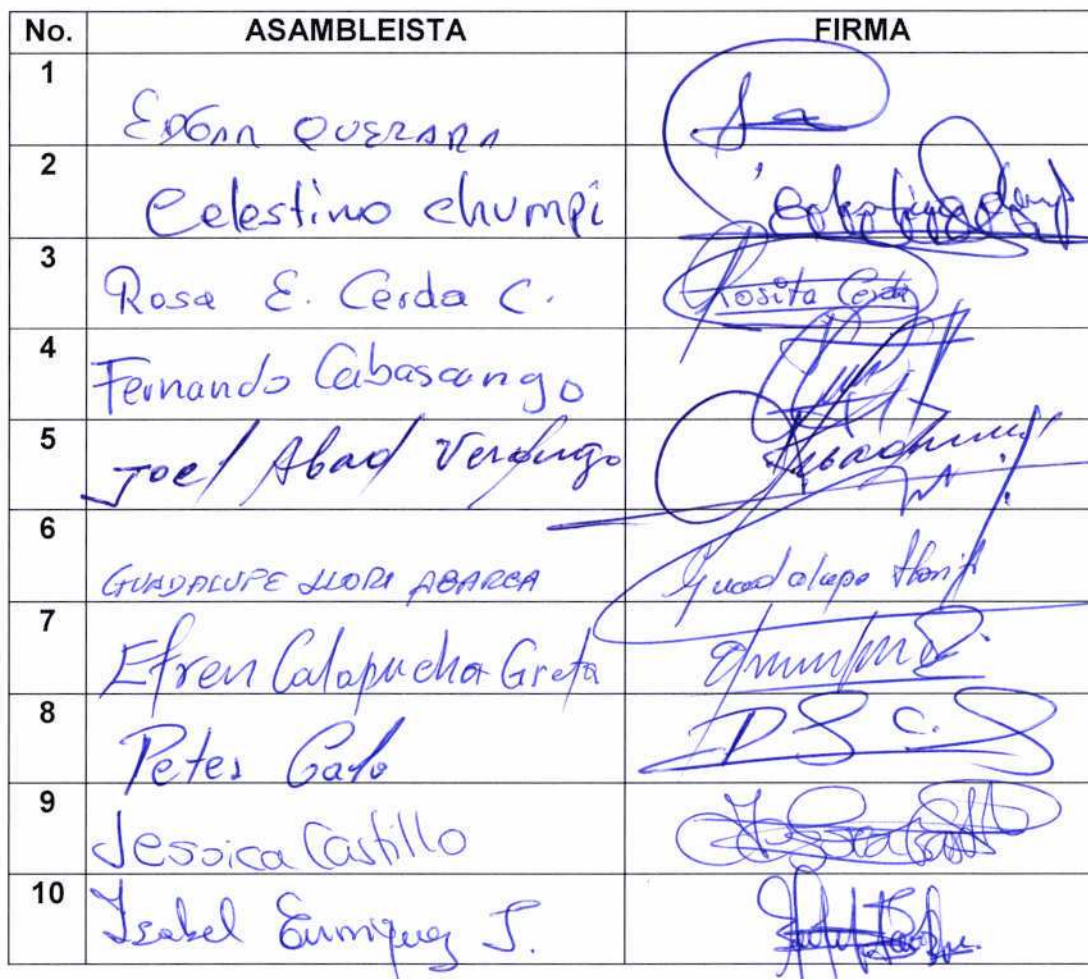 No. ASAMBLEISTA FIRMA
1 EDGAR QUEZADA
2 Celestino chumpi
3 Rosa E. Cerda C. Rosita Cerda
4 Fernando Cabascango
5 Joel Abad Verdugo
6 GUADALUPE LLORI ABARCA Guadalupe Llori
7 Efren Calapucha Grefa
8 Peter Calo
9 Jessica Castillo
10 Isabel Enrriquez J.